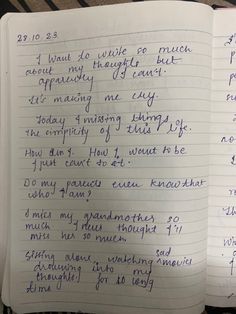 28.10.23.
I want to write so much
about my thoughts but
apparently I can't.
It's making me cry.
Today I missing things.
The simplicity of this life.
How am I. How I want to be
I just can't to it.
Do my parents even know that
who I am?
I miss my grandmother so
much I never thought I'll
miss her so much.
Sitting alone, watching sad movies
drowning into my
thoughts for so long
time.